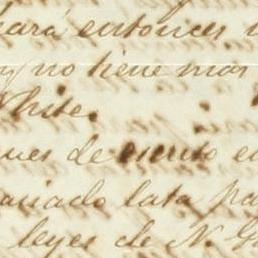 ará entonces
y no tiene mas
White.
ues de escrito e
asiado lata pa
leyes de N. G